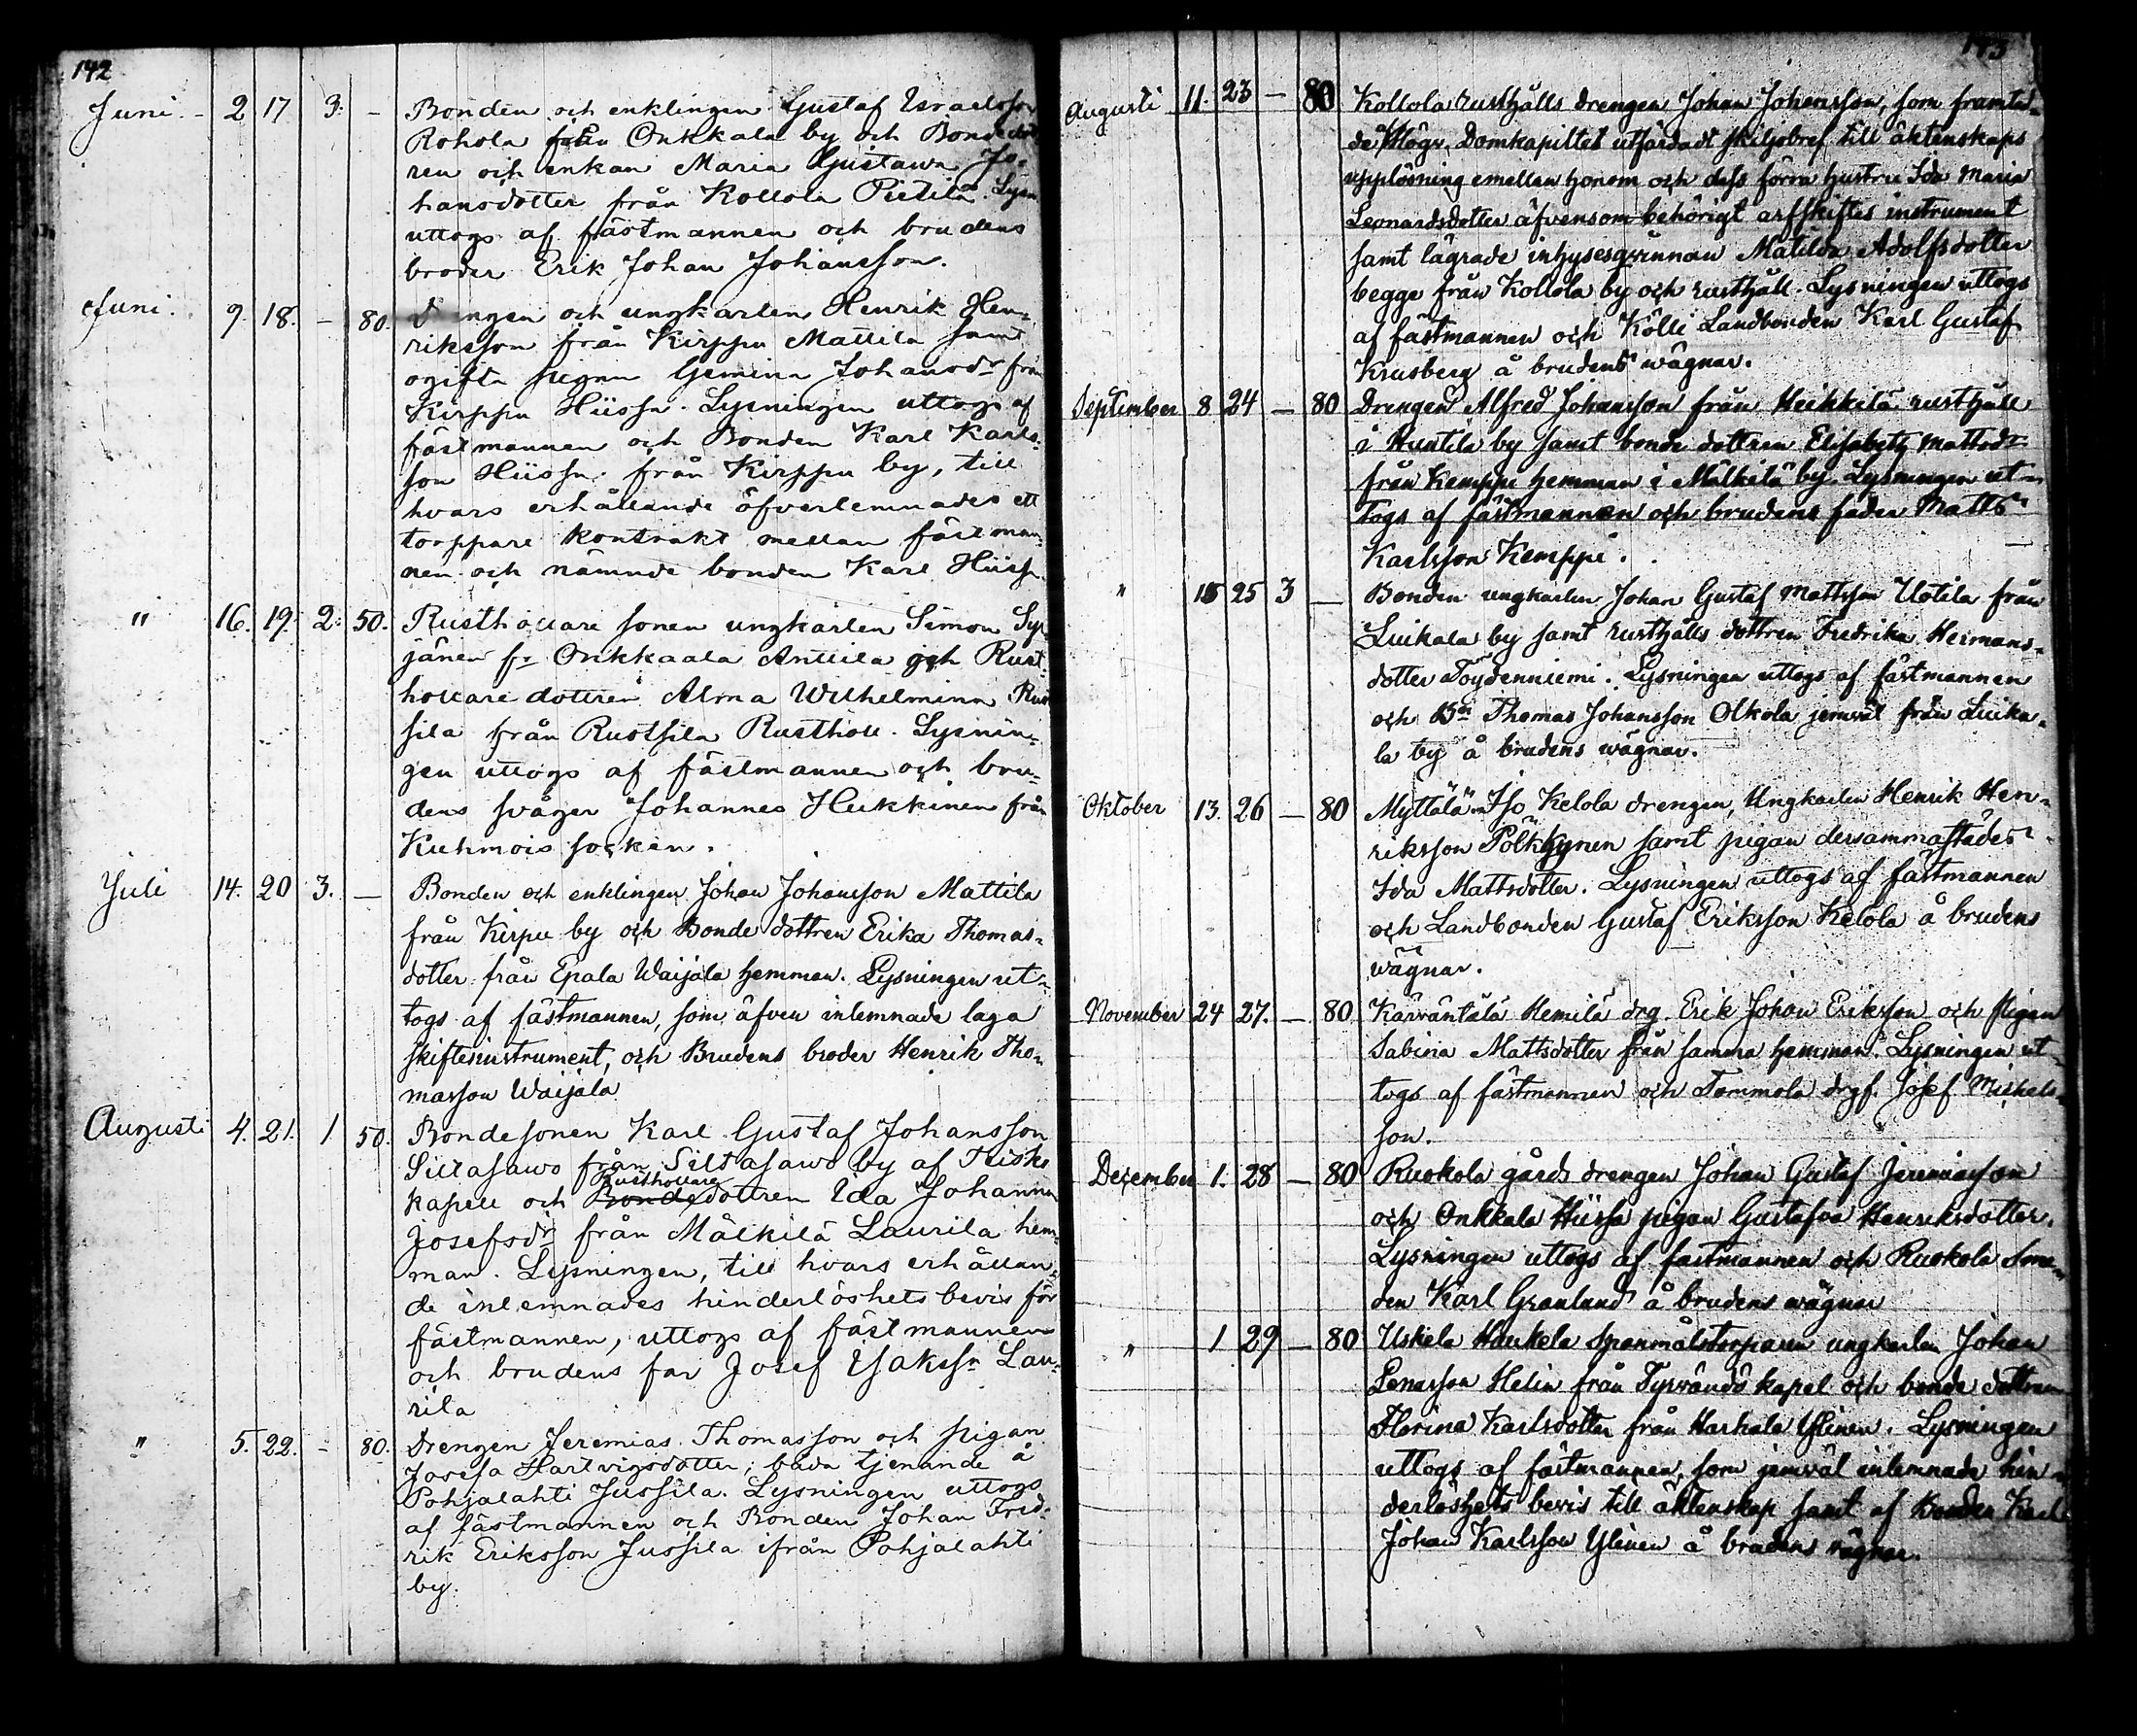 142
Juni. - 2 17 3. - Bonden och enklingen Gustaf Israelsson
Rohola från Onkkala by och Bonde dott
ren och enkan Maria Gustawa Jo-
hansdotter från Kollola Pietilä. Lysn.
uttogs af fästmannen och brudens
broder Erik Johan Johansson.
Juni. 9. 18. - 80. Drengen och ungkarlen Henrik Hen-
riksson från Kirppu Mattila samt
ogifta pigan Gemina Johansdr från
Kirppu Hiissa. Lysningen uttogs af
fästmannen och Bonden Karl Karls-
son Hiissa från Kirppu by, till
hvars erhållande öfverlemnades ett
torppare kontrakt mellan fästman-
nen och nämnde bonden Karl Hiissa
" 16. 19. 2. 50. Rusthollare sonen ungkarlen Simon Syr
jänen fr Onkkaala Anttila och Rust-
hollare dottren Alma Wilhelmina Rus
sila från Rustsila Rusthåll. Lysnin-
gen uttogs af fästmannen och bru-
dens svåger Johannes Hukkinen från
Kuhmois socken.
Juli 14. 20 3. - Bonden och enklingen Johan Johansson Mattila
från Kirpu by och Bonde dottren Erika Thomas-
dotter från Epala Waijala hemman. Lysningen ut-
togs af fästmannen, som äfven inlemnade laga
skiftesinstrument, och Brudens broder Henrik Tho-
masson Waijala
Augusti 4. 21. 1 50. Bondesonen Karl Gustaf Johansson
Siltasawo från Siltasawo by af
Rusthollare
kapell och Bondedottren Ida Johanna
Josefsdr från Mälkilä Laurila hem-
man. Lysningen, till hvars erhållan-
de inlemnades hinderlöshets bevis för
fästmannen, uttogs af fästmannen
och brudens far Josef Isakssn Lau-
rila
" 5. 22. - 80. Drengen Jeremias Thomasson och pigan
Josefa Hartvigsdotter, båda tjenande å
Pohjalahti Jussila. Lysningen uttogs
af fästmannen och Bonden Johan Fred-
rik Eriksson Jussila ifrån Pohjalahti
by.
143
Augusti 11. 23 - 80 Kollola rusthålls drengen Johan Johansson, som framted-
de Högv. Domkapitlet utfärdadt skiljobref till äktenskaps
upplösning emellan honom och dess förra hustru Ida Maria
Leonardsdotter äfvensom behörigt arfskiftes instrument
samt lägrade inhysesqvinnan Matilda Adolfsdotter
begge från Kollola by och rusthåll. Lysningen uttogs
af fästmannen och Kölli Landbonden Karl Gustaf
Krusberg å brudens wägnar.
September 8 24 - 80 Drengen Alfred Johansson från Heikkilä rusthåll
i Huntila by samt bonde dottren Elisabeth Mattsdr
från Kemppi hemman i Mälkilä by. Lysningen ut-
togs af fästmannen och brudens fader Matts
Karlsson Kemppi.
" 15 25 3 - Bonden ungkarlen Johan Gustaf Mattsson Uotila från
Luikala by samt rusthålls dottren Fredrika Hermans-
dotter Töydenniemi. Lysningen uttogs af fästmannen
och Bn Thomas Johansson Olkola jemväl från Luika-
la by å brudens wägnar.
Oktober 13. 26 - 80 Myttälä Iso Kelola drengen, Ungkarlen Henrik Hen-
riksson Pölkkynen samt pigan dersammastädes
Ida Mattsdotter. Lysningen uttogs af fästmannen
och Landbonden Gustaf Eriksson Kelola å brudens
wägnar.
November 24 27. - 80 Kärväntälä Hemilä drg. Erik Johan Eriksson och Pigan
Sabina Mattsdotter från samma hemman. Lysningen ut-
togs af fästmannen och Tommola drgs. Josef Michels-
son.
December 1. 28 - 80 Ruokola gårds drengen Johan Gustaf Jeremiasson
och Onkkala Hiissa pigan Gustafva Henriksdotter.
Lysningen uttogs af fastmannen och Ruokola Sme-
den Karl Granlund å brudens wägnar
" 1 29 - 80 Uskela Haukela spanmålstorparen ungkarlen Johan
Lenasson Helin från Tyrväntö kapel och bonde dottren
Florina Karlsdotter från Harhala Ylinen. Lysningen
uttogs af fästmannen, som jemväl inlemnade hin-
derlöshets bevis till äktenskap samt af Bonden Karl
Johan Karlsson Ylinen å brudens wägnar.